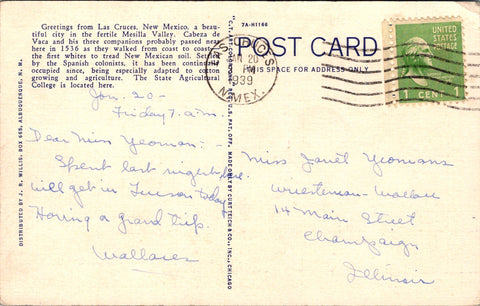 Greetings from Las Cruces, New Mexico, a beau-
tiful city in the fertile Mesilla Valley. Cabeza de
Vaca and his three companions probably passed near
here in 1536 as they walked from coast to coast,
the first whites to tread New Mexican soil. Settled
by the Spanish colonists, it has been continually
occupied since, being especially adapted to cotton
growing and agriculture. The State Agricultural
College is located here.
Jan. 20 -
Friday 7 a.m.
Dear Miss Yeoman: -
Spent last night here
will get in Tucson today
Having a grand trip.
Wallaces
DISTRIBUTED BY J. R. WILLIS, BOX 665, ALBUQUERQUE, N. M.
REG. U.S. PAT. OFF. MADE ONLY BY CURT TEICH & CO., INC., CHICAGO
7A-H1166
POST CARD
THIS SPACE FOR ADDRESS ONLY
20
PM
1939
N.MEX.
UNITED
STATES
POSTAGE
1 CENT 1
Miss Janet Yeomans
Wuesteman-Wallace
14 Main Street
Champaign
Illinois